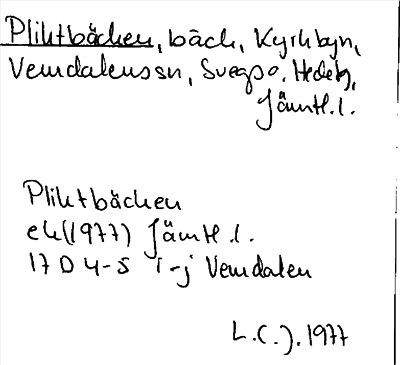 Pliktbäcken, bäck, Kyrkbyn,
Vemdalens sn, Svegs po, Hede tg,
Jämtl. l.
Pliktbäcken
ek (1977) Jämtl. l.
17 D 4-5 i-j Vemdalen
L.C.J. 1977